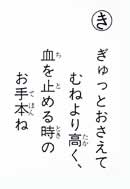 き
ぎゅっとおさえて
むねより高く、
血を止める時の
お手本ね